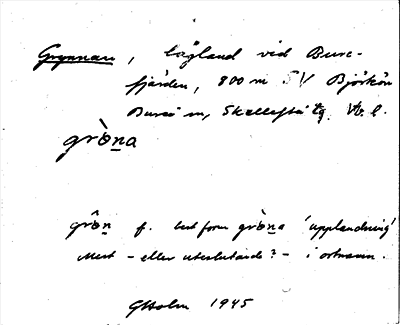 Grynnan, lågland vid Bure-
fjärden, 800 m SV Björkön
Bureå sn, Skellefteå tg. Vb. l.
grò̀na
grôn f. best form gròna 'upplandning'
Mest - eller uteslutande? - i ortnamn.
GHolm 1945